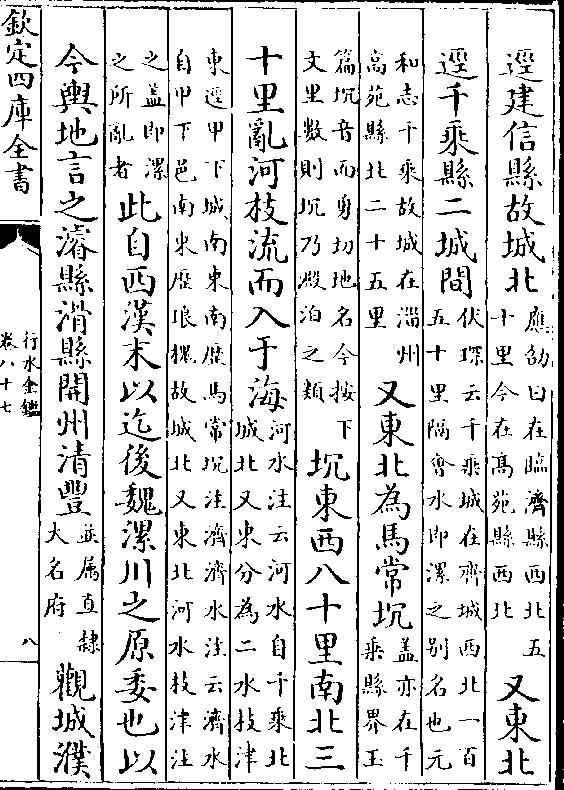 逕建信縣故城北應劭曰在臨濟縣西北五十里今在高苑縣西北又東北
逕千乘縣二城間伏琛云千乘城在齊城西北一百五十里隔會水即漯之别名也元
和志千乘故城在淄州高苑縣北二十五里又東北為馬常坈蓋亦在千乘縣界玉
篇坈音而勇切地名今按下文里數則坈乃澱泊之類坈東西八十里南北三
十里亂河枝流而入于海河水注云河水自千乘北城北又東分為二水枝津
東逕甲下城南東南歷馬常坈注濟濟水注云濟水自甲下邑南東歷琅槐故城北又東北河水枝津注
之盖即漯之所亂者此自西漢末以迄後魏漯川之原委也以
今輿地言之濬縣滑縣開州清豐並属直隷大名府觀城濮
欽定四庫全書
行水金鑑
卷八十七
八